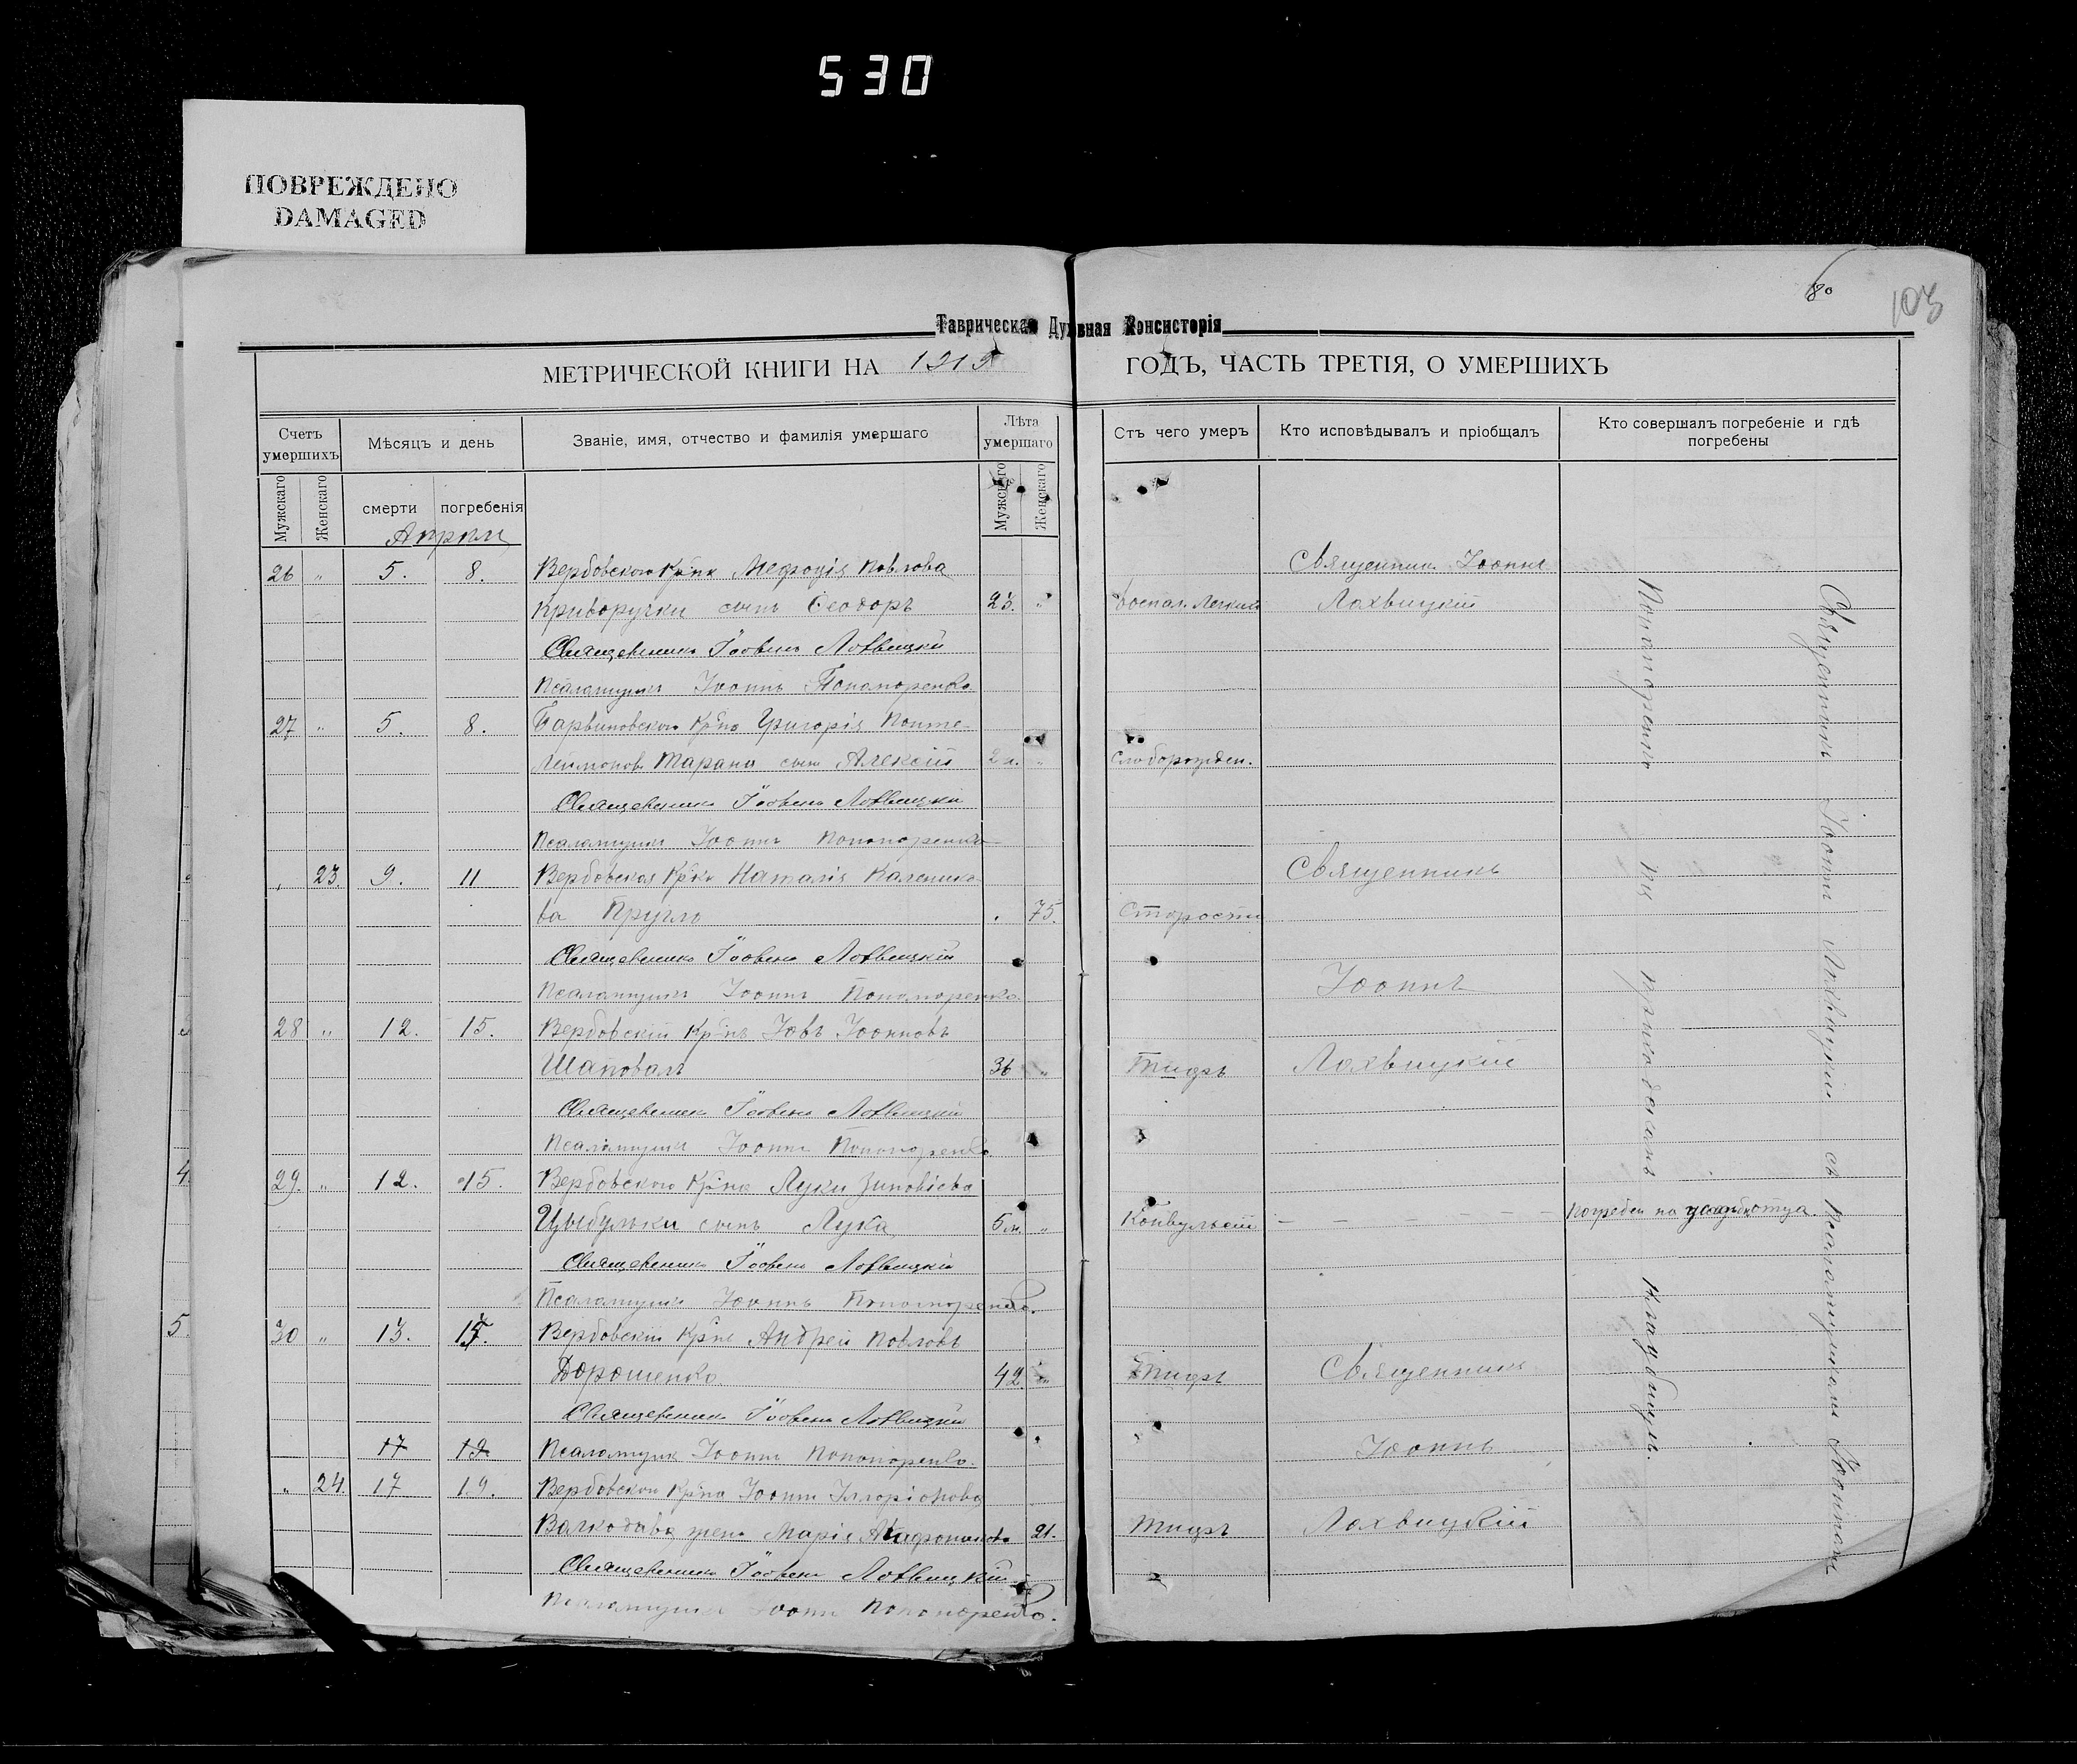 530
ПОВРЕЖДЕНО
DAMAGED
80
103
Таврическая Духовная Консисторія
МЕТРИЧЕСКОЙ КНИГИ НА 1915 ГОДЪ, ЧАСТЬ ТРЕТІЯ, О УМЕРШИХЪ
Счетъ умершихъ
Мѣсяцъ и день
Званіе, имя, отчество и фамилія умершаго
Лѣта умершаго
Отъ чего умеръ
Кто исповѣдывалъ и пріобщалъ
Кто совершалъ погребеніе и гдѣ погребены
Мужскаго
Женскаго
смерти
погребенія
Мужскаго
Женскаго
26 " 5. 8. Вербовского Кр-на Мефодія Павлова Священник Іоаннъ
Криворучки сынъ Ѳеодоръ 23. " Воспал. Легкихъ Лохвицкій
Священникъ Іоаннъ Лохвицкій
Псаломщикъ Іоаннъ Пономаренко
27 " 5. 8. Барвиновского Кр-на Григорія Панте-
леимонов Тарана сынъ Алексій 2 н. " Слаборожден.
Священникъ Іоаннъ Лохвицкій
Псаломщикъ Іоаннъ Пономаренко
" 23. 9. 11 Вербовская Кр-ка Наталія Каленико- Священникъ
ва Кругль . 75. Старости
Священникъ Іоаннъ Лохвицкій
Псаломщикъ Іоаннъ Пономаренко. Іоаннъ
28 " 12. 15. Вербовскій Кр-нъ Іовъ Іоанновъ
Шаповалъ 36 " Тифъ Лохвицкій
Священникъ Іоаннъ Лохвицкій
Псаломщикъ Іоаннъ Пономаренко.
29. " 12. 15. Вербовского Кр-на Луки Зиновіева
Цыбульки сынъ Лука 5 м. " Конвульсіи Погребен на
Священникъ Іоаннъ Лохвицкій
Псаломщикъ Іоаннъ Пономаренко.
30 " 13. 15. Вербовскій Кр-нъ Андрей Павловъ
Дорошенко. 42 " Тифъ Священникъ
Священникъ Іоаннъ Лохвицкій
17 19 Псаломщик Іоаннъ Пономаренко. Іоаннъ
" 24. 17 19. Вербовского Кр-на Іоанна Илларіонова
Валкодава жена Марія 21. Тифъ Лохвицкій
Священникъ Іоаннъ Лохвицкій
Псаломщикъ Іоаннъ Пономаренко.
Священникъ Іоаннъ Лохвицкій съ Псаломщикомъ Іоанномъ
Пономаренко на приходскомъ кладбищѣ.
4
5